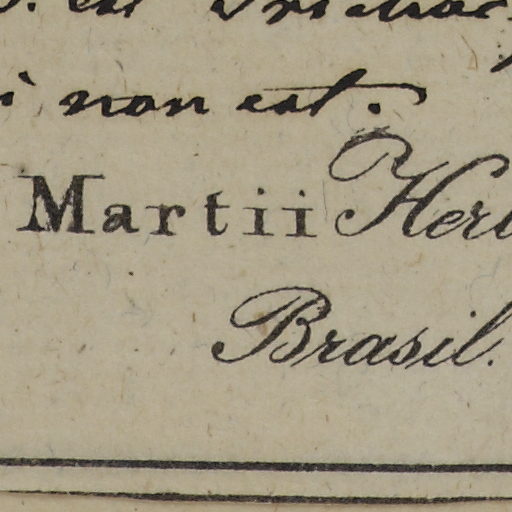 est
non est.
Martii Her
Brasil.